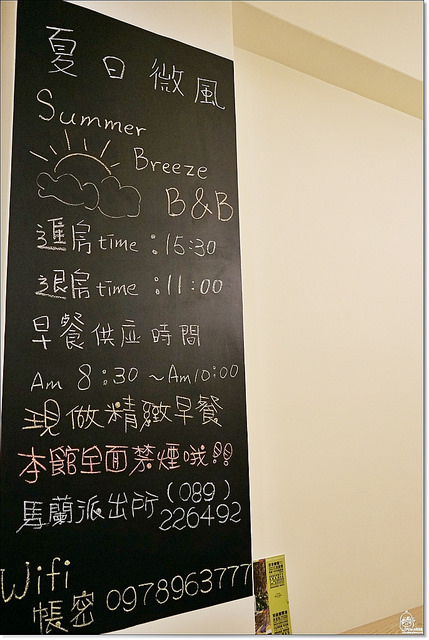 夏日微風
Summer
Breeze
B&B
進房time：15:30
退房time：11:00
早餐供应時間
Am 8:30 ~Am10:00
現做精緻早餐
本館全面禁煙哦!!
馬蘭派出所(089)
226492
Wifi
帳密 0978963777